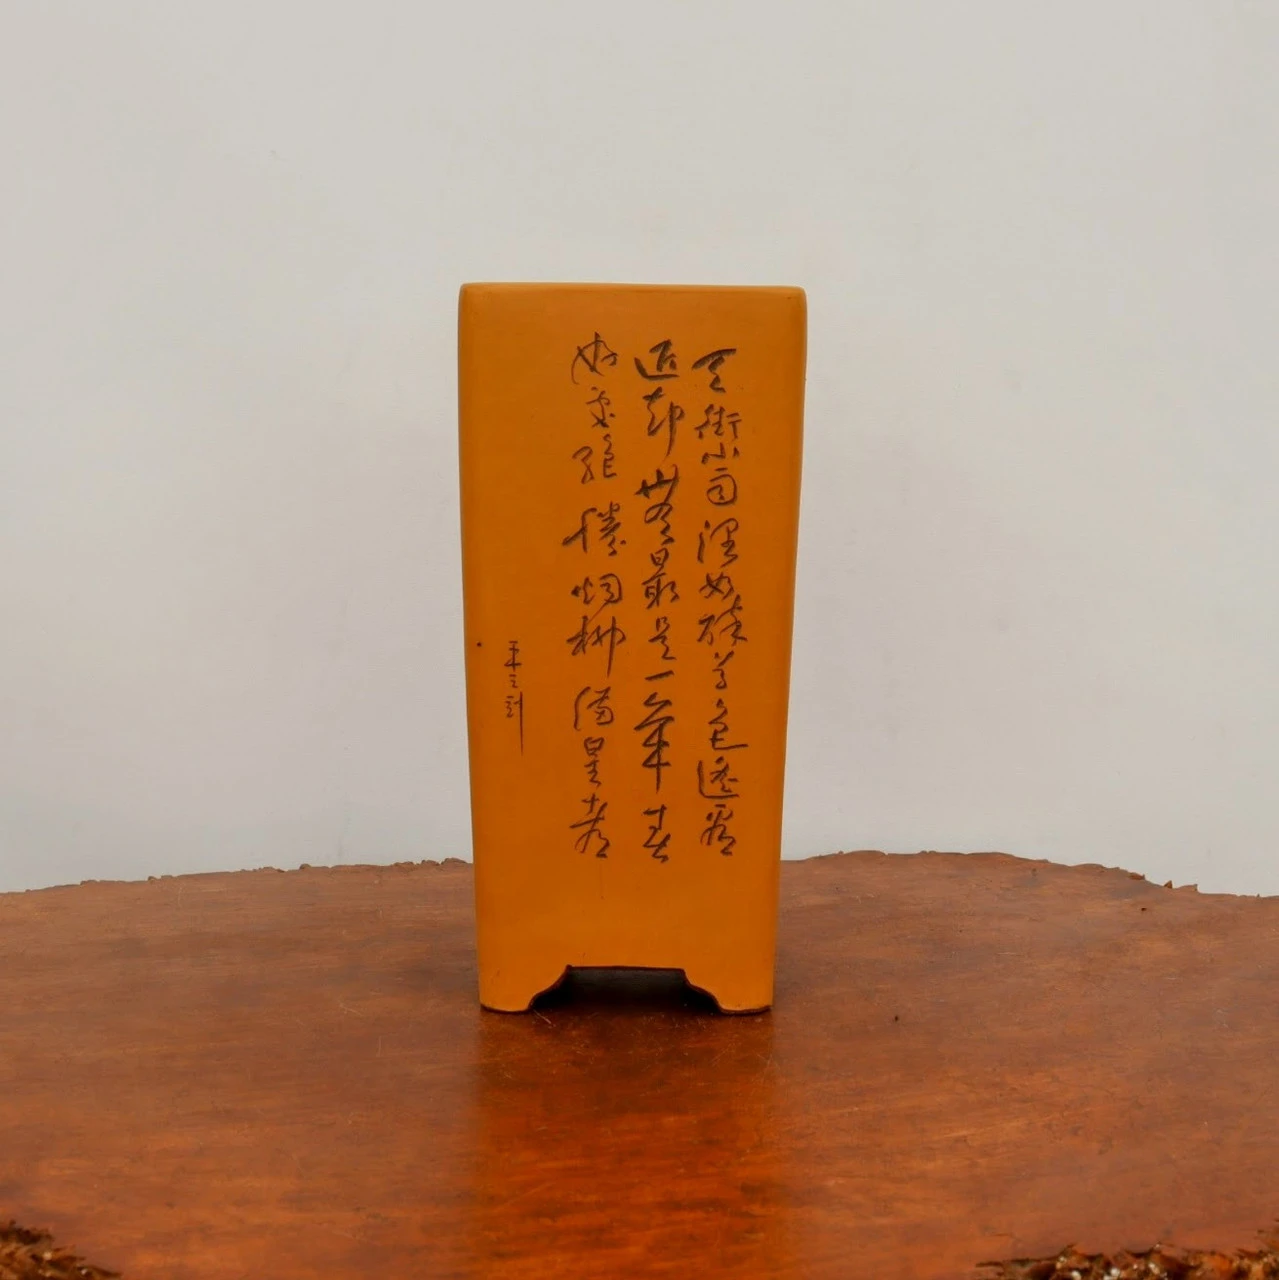 天街小雨潤如酥草色遥看
近却無最是一年春
好處絕勝烟柳滿皇都
之刻